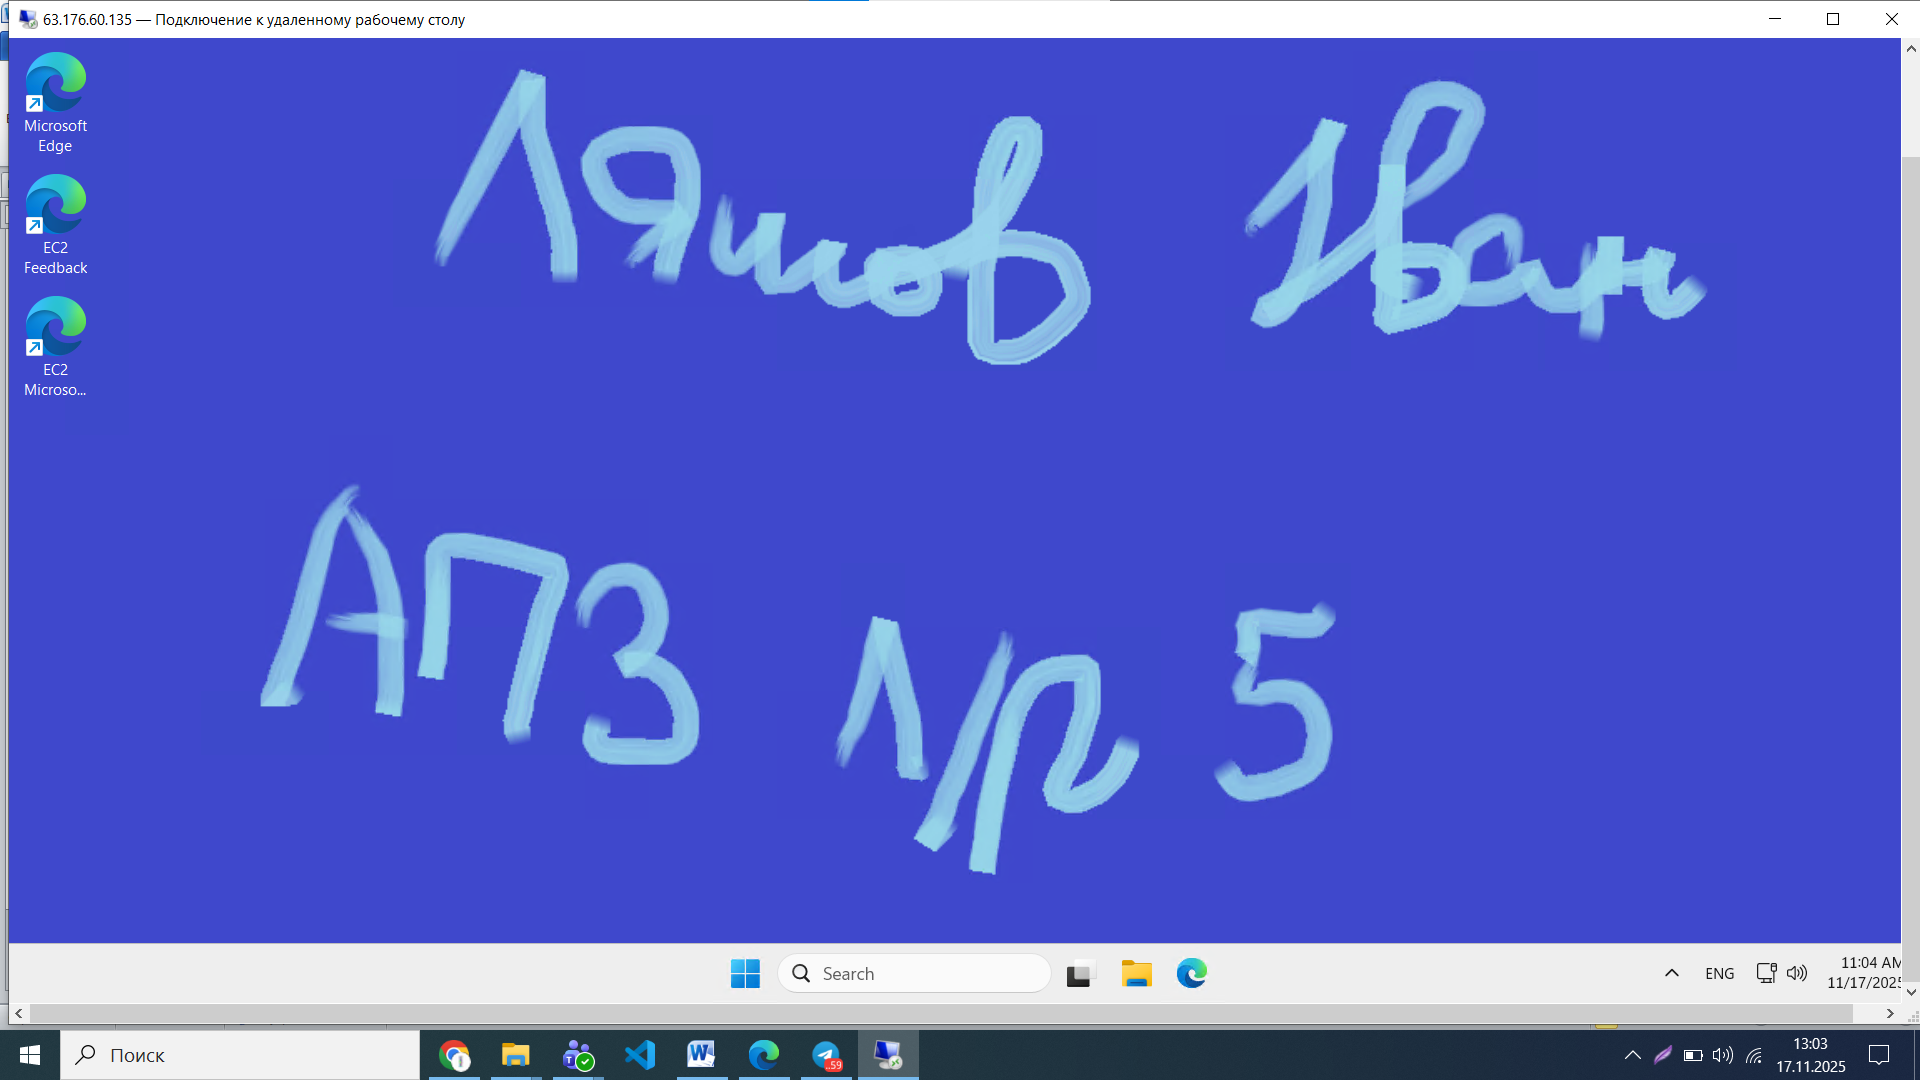 63.176.60.135 — Подключение к удаленному рабочему столу
Microsoft
Edge
EC2
Feedback
EC2
Microso...
Ляшов Иван
АПЗ л/р 5
Search
ENG
11:04 AM
11/17/2025
Поиск
..59
13:03
17.11.2025